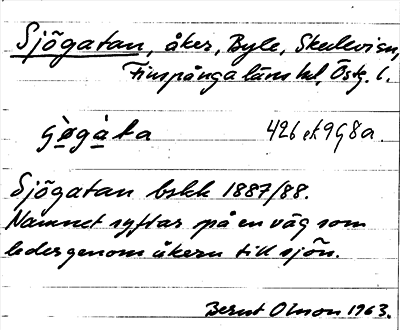 Sjögatan, åker, Byle, Skedevisn,
Finspånga läns hd, Östg. l.
gø̀gàta 426 ek 9G8a.
Sjögatan bskk 1887/88.
Namnet syftar på en väg som
leder genom åkern till sjön.
Bernt Olsson 1963.